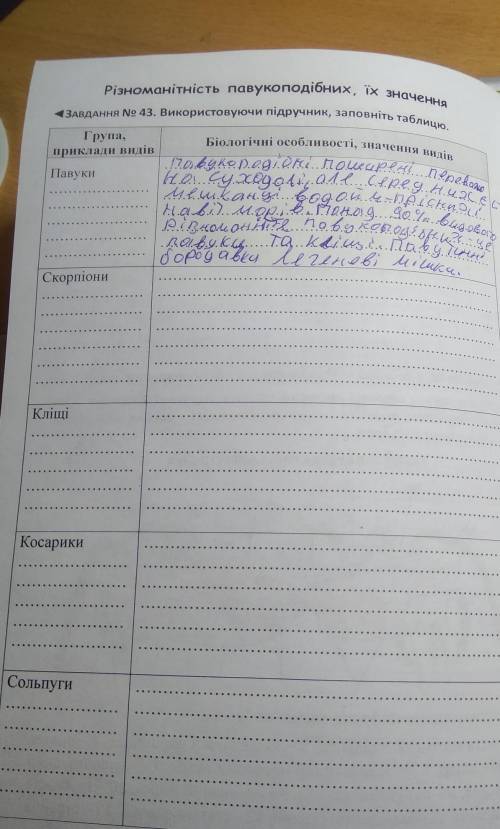 Різноманітність павукоподібних, їх значення
◄ЗАВДАННЯ № 43. Використовуючи підручник, заповніть таблицю.
Група,
приклади видів
Біологічні особливості, значення видів
Павуки
Павукоподібні поширені переважно
на суходолі, але серед них є й
мешканці водойм - прісних і
навіть морів. Понад 90% видового
різноманіття павукоподібних - це
павуки та кліщі. Павутинні
бородавки легеневі мішки.
Скорпіони
Кліщі
Косарики
Сольпуги